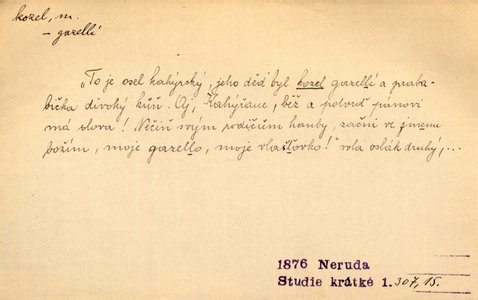 kozel, m.
- gazellí
„To je osel kabýrský, jeho děd byl kozel gazellí a praba-
bička divoký kůň. Aj, Kabýřane, běž a potvrď pánovi
má slova! Nečiň svým rodičům hanby, začni ve jmenu
božím, moje gazello, moje vlaštovko!" volá oslák druhý,...
1876 Neruda
Studie krátké 1. 307, 15.